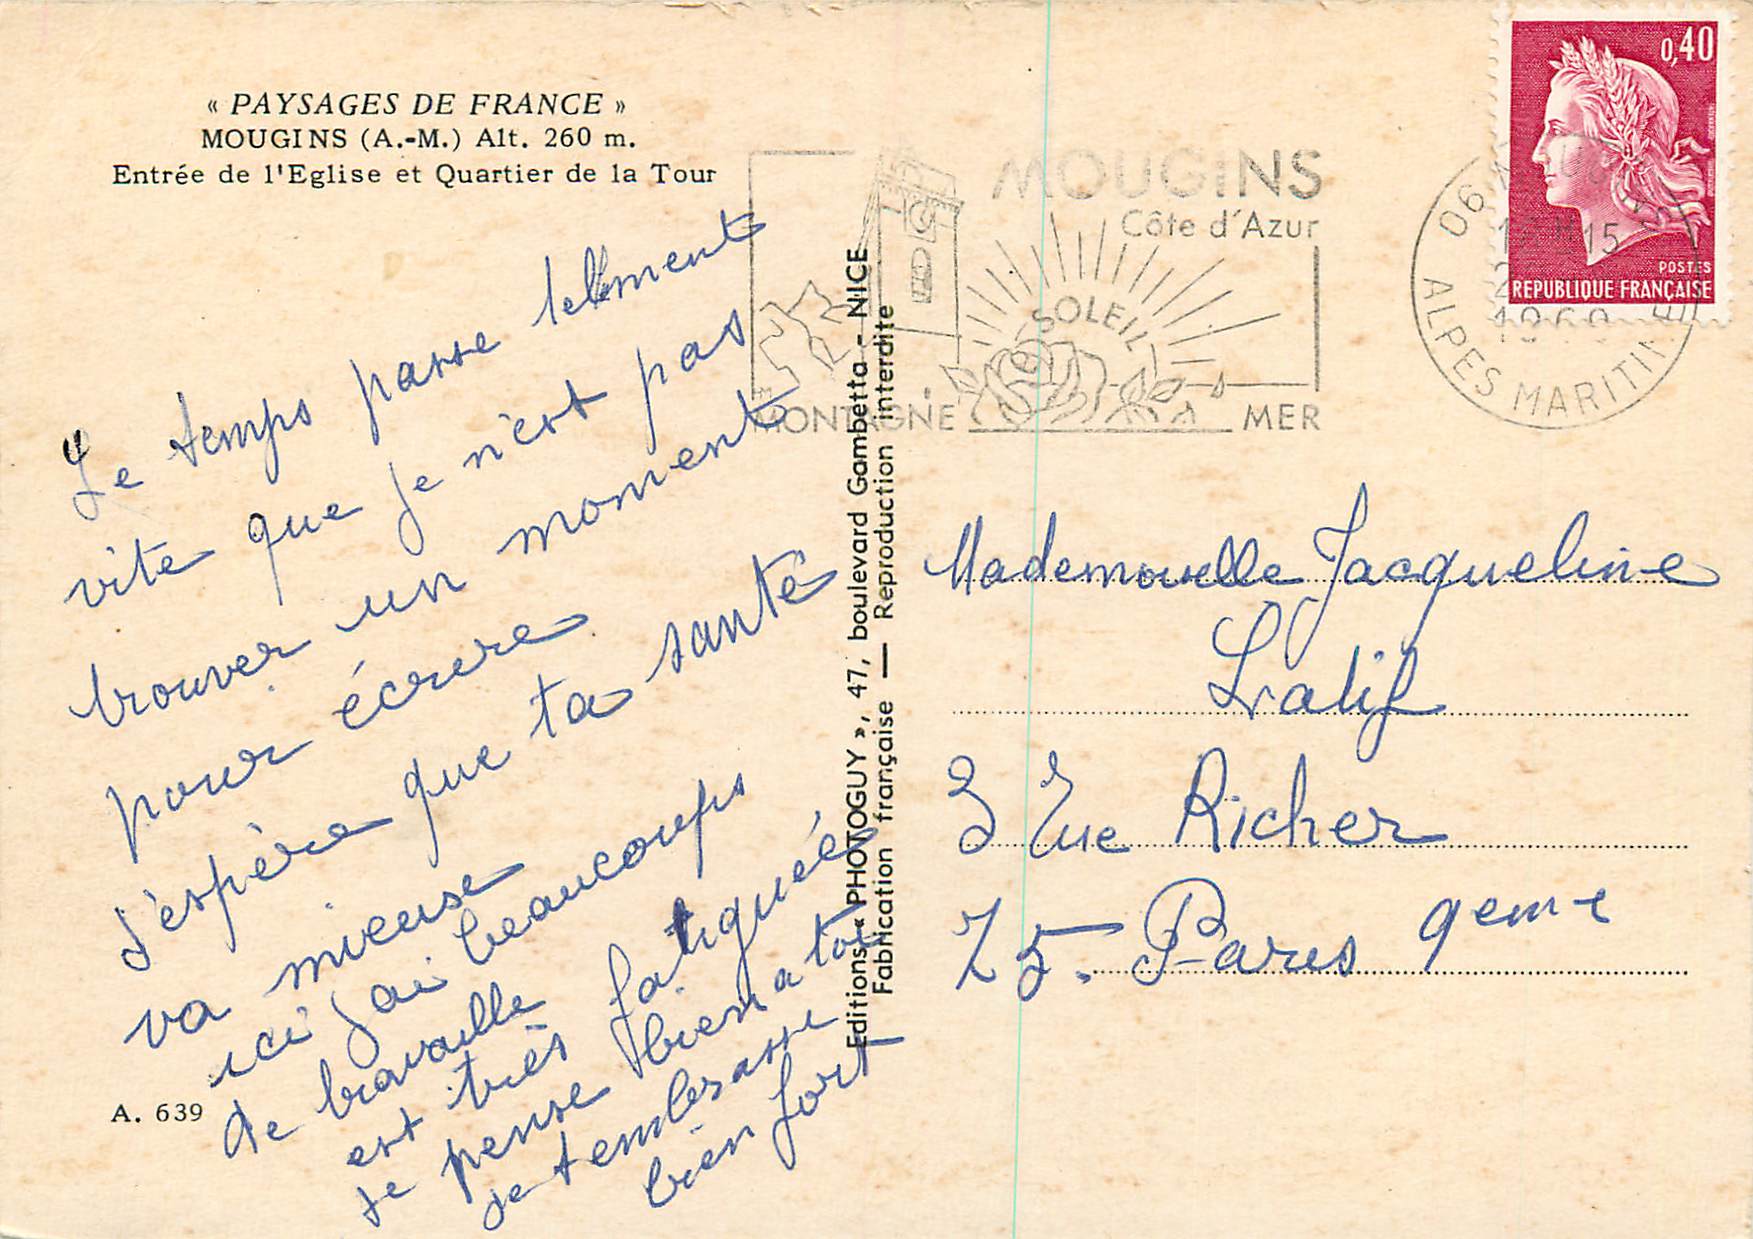 « PAYSAGES DE FRANCE »
MOUGINS (A.-M.) Alt. 260 m.
Entrée de l'Eglise et Quartier de la Tour
Le temps passe tellement
vite que je n'est pas
trouver un moment
pour écrire
j'espère que ta santé
va mieuse
ici j'ai beaucoups
de travaille
est très fatiguée
je pense bien a toi
je tembrasse
bien fort
A. 639
Editions « PHOTOGUY », 47, boulevard Gambetta - NICE
Fabrication française — Reproduction interdite
MOUGINS
Côte d'Azur
SOLEIL
MONTAGNE
MER
0,40
POSTES
REPUBLIQUE FRANÇAISE
06 MOUGINS
15
1969
ALPES MARITIMES
Mademoiselle Jacqueline
Latif
3 Rue Richer
75. Paris 9eme